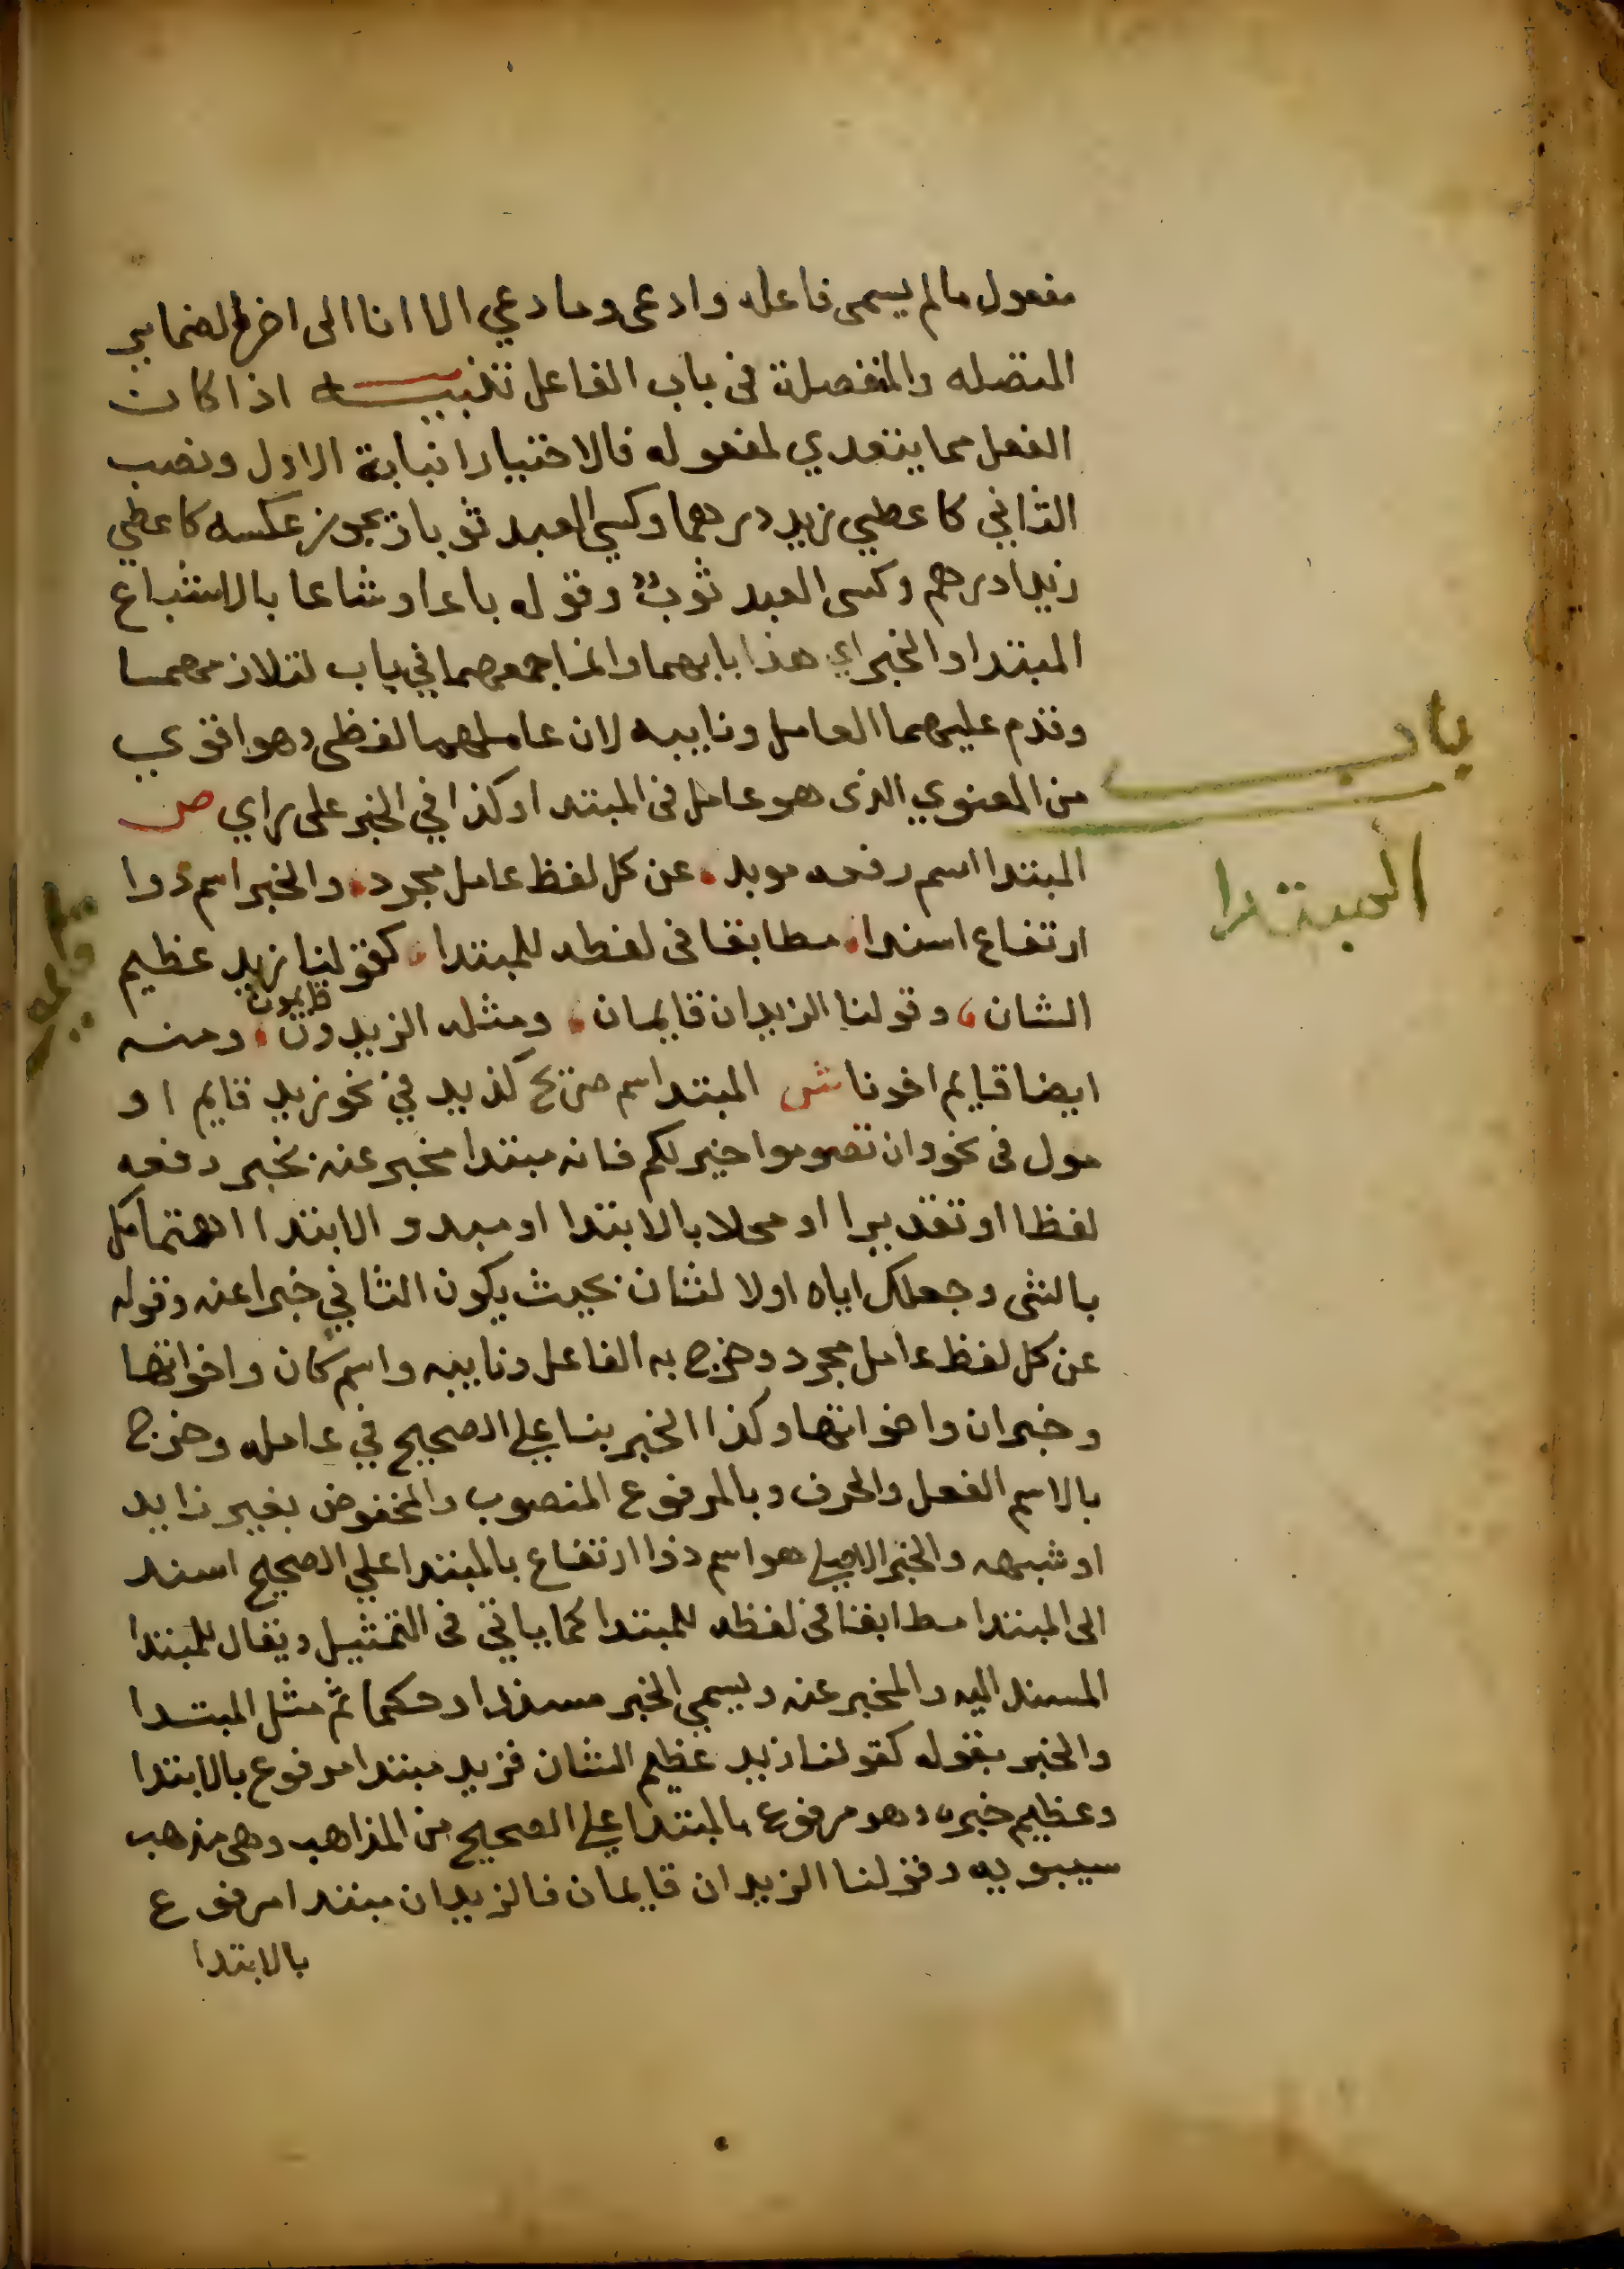 مفعول مالم يسمى فاعله وادعى وما دعي الا انا الى اخر الضماير
المتصله والمنفصلة فى باب الفاعل تنبيه اذا كان
الفعل مما يتعدي لمفعوله فالاختيار انيابة الاول ونصب
الثاني كاعطي زيد درهما وكسي العبد ثوبا ويجوز عكسه كاعطي
زيدا درهم وكسى العبد ثوبٌ وقوله باعا وشاعا بالاشباع
المبتدا والخبر اي هذا بابهما وانما جمعهما في باب لتلازمهما
وقدم عليهما العامل ونايبه لان عاملهما لفظى وهو اقوي
من المعنوي الذى هو عامل فى المبتدا وكذا في الخبر على راي ص
المبتدا اسم رفعه موبد عن كل لفظ عامل مجرد والخبر اسم ذوا
ارتفاع اسندا مطابقا فى لفظه للمبتدا كقولنا زيد عظيم
الشان وقولنا الزيدان قايمان ومثله الزيدون قايمون ومنه
ايضا قايم اخونا ش المبتدا اسم صريح كزيد في نحو زيد قايم او
مول فى نحو وان تصوموا خير لكم فانه مبتدا مخبر عنه بخبر رفعه
لفظا او تقديرا او محلا بالابتدا او مبدو الابتدا اهتمامك
بالشى وجعلك اياه اولا لثان بحيث يكون الثاني خبرا عنه وقوله
عن كل لفظ عامل مجرد وخرج به الفاعل ونايبه واسم كان واخواتها
وخبر ان واخواتها وكذا الخبر بنا علي الصحيح في عامله وخرج
بالاسم الفعل والحرف وبالمرفوع المنصوب والمخفوض بغير زايد
او شبهه والخبر هو اسم ذوا ارتفاع بالمبتدا علي الصحيح اسند
الى المبتدا مطابقا فى لفظه للمبتدا كما ياتي فى التمثيل ويقال للمبتدا
المسند اليه والمخبر عنه ويسمي الخبر مسندا وحكما ثم مثل المبتدا
والخبر بقوله كقولنا زيد عظيم الشان فزيد مبتدا مرفوع بالابتدا
وعظيم خبره وهو مرفوع بالمبتدا علي الصحيح من المذاهب وهى مذهب
سيبويه وقولنا الزيدان قايمان فالزيدان مبتدا مرفوع
بالابتدا
باب
المبتدا